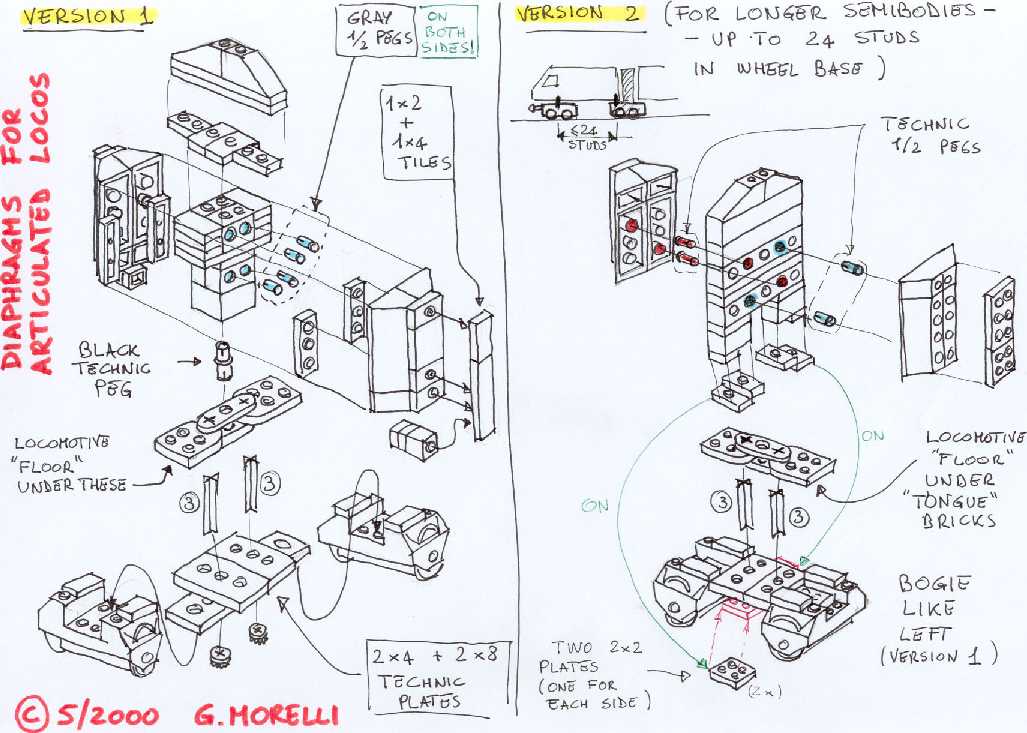 VERSION 1
GRAY
1/2 PEGS
ON
BOTH
SIDES!
1×2
+
1×4
TILES
DIAPHRAGMS FOR
ARTICULATED LOCOS
BLACK
TECHNIC
PEG
LOCOMOTIVE
"FLOOR"
UNDER THESE
3
3
2×4 + 2×8
TECHNIC
PLATES
© 5/2000 G. MORELLI
VERSION 2 (FOR LONGER SEMIBODIES -
- UP TO 24 STUDS
IN WHEEL BASE)
≤24
STUDS
TECHNIC
1/2 PEGS
ON
ON
LOCOMOTIVE
"FLOOR"
UNDER
"TONGUE"
BRICKS
3
3
BOGIE
LIKE
LEFT
(VERSION 1)
TWO 2×2
PLATES
(ONE FOR
EACH SIDE)
(2×)